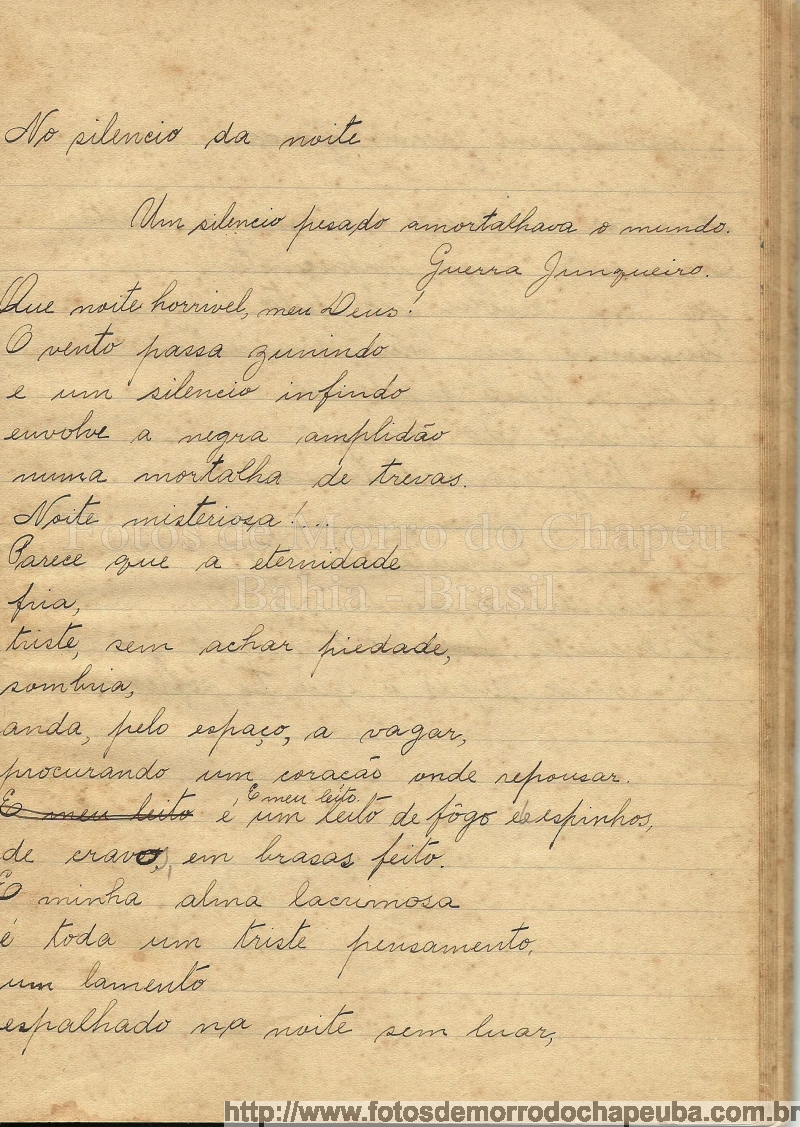 No silencio da noite
Um silencio pesado amortalhava o mundo.
Guerra Junqueiro.
Que noite horrivel, meu Deus!
O vento passa zunindo
e um silencio infindo
envolve a negra amplidão
numa mortalha de trevas.
Noite misteriosa!...
Fotos de Morro do Chapéu
Parece que a eternidade
Bahia - Brasil
fria,
triste, sem achar piedade,
sombria,
anda, pelo espaço, a vagar,
procurando um coração onde repousar.
E meu leito.
E meu leito é um leito de fôgo e espinhos,
de cravos, em brasas feito.
E minha alma lacrimosa
é toda um triste pensamento,
um lamento
espalhado na noite sem luar,
http://www.fotosdemorrodochapeuba.com.br